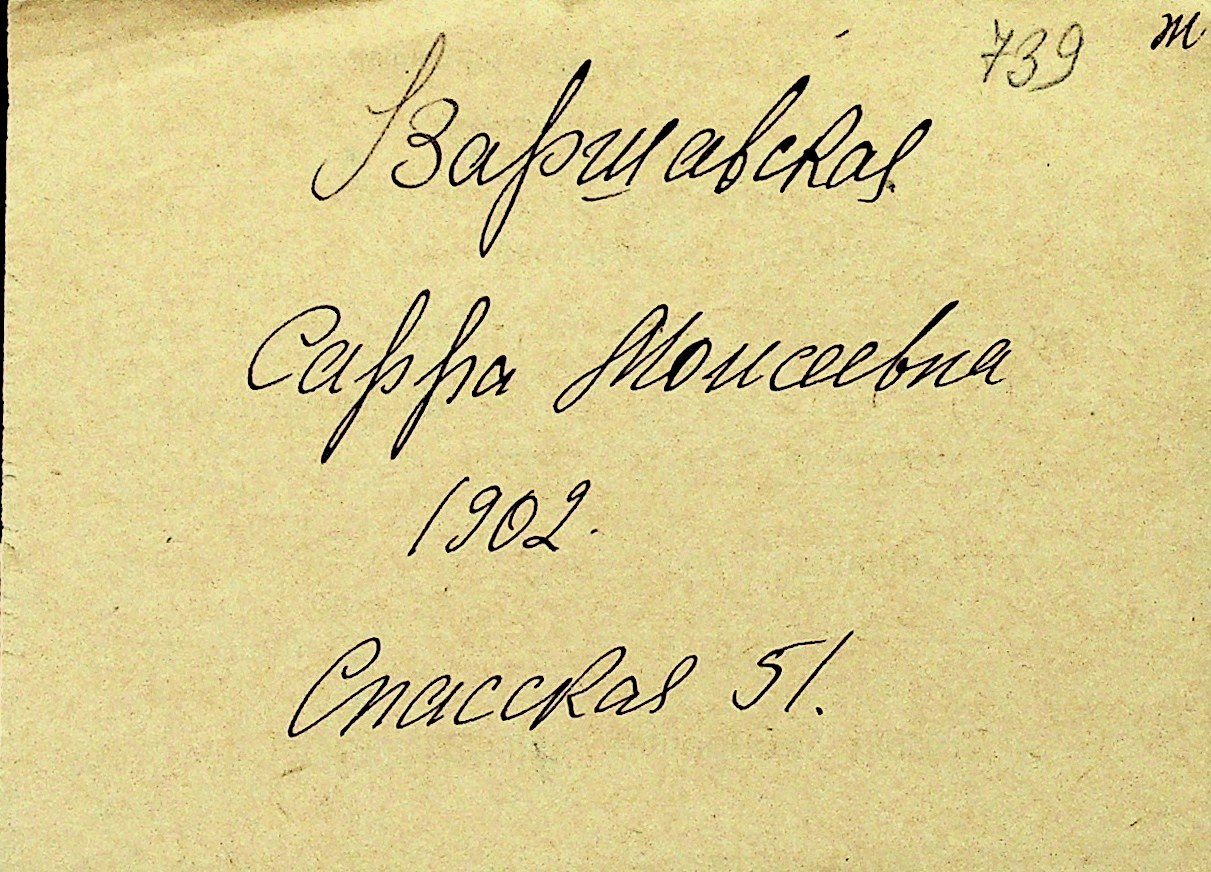 739 т
Варшавская
Сарра Моисеевна
1902.
Спасская 51.